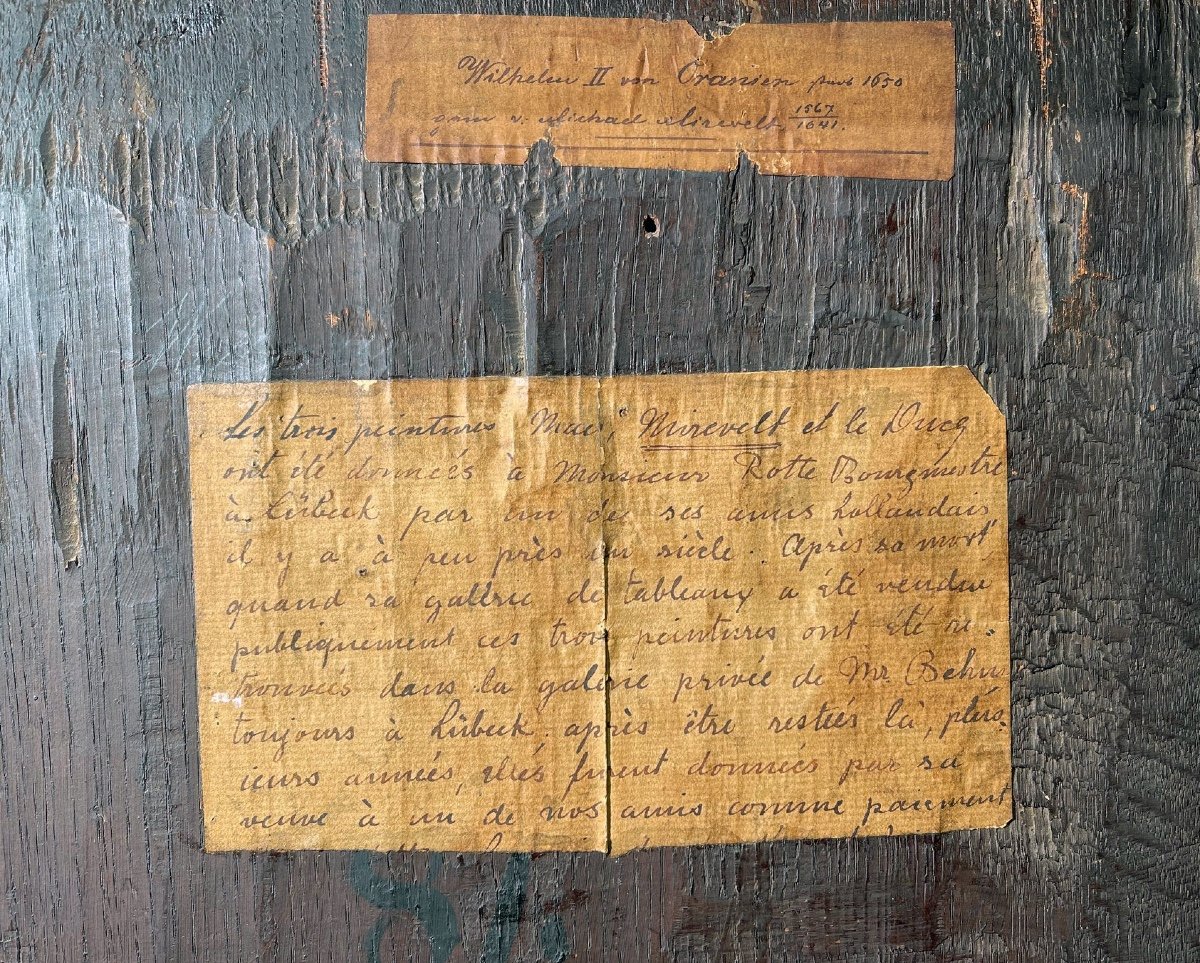 Wilhelm II von Oranien starb 1650
gem v. Michael Mirevelt 1567/1641.
Les trois peintures Maes, Mirevelt et le Ducq
ont été données à Monsieur Rotte Bourgmestre
à Lübeck par un de ses amis hollandais
il y a à peu près un siècle. Après sa mort
quand sa galerie de tableaux a été vendue
publiquement ces trois peintures ont été re-
trouvées dans la galerie privée de Mr. Behn
toujours à Lübeck. après être restées là, plus-
ieurs années, elles furent données par sa
veuve à un de nos amis comme paiement